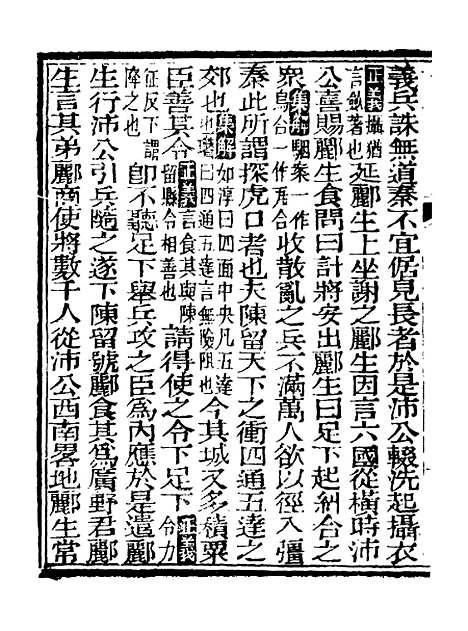 義兵誅無道秦不宜倨見長者於是沛公輟洗起攝衣
正義攝猶言斂著也延酈生上坐謝之酈生因言六國從橫時沛
公喜賜酈生食問曰計將安出酈生曰足下起糾合之
衆集解駰案一作烏合一作瓦合收散亂之兵不滿萬人欲以徑入彊
秦此所謂探虎口者也夫陳留天下之衝四通五達之
郊也集解如淳曰四面中央凡五達也瓚曰四通五達言無險阻也今其城又多積粟
臣善其令正義言食其與陳留縣令相善也請得使之令下足下正義令力
征反下謂降之也卽不聽足下舉兵攻之臣爲内應於是遣酈
生行沛公引兵隨之遂下陳留號酈食其爲廣野君酈
生言其弟酈商使將數千人從沛公西南畧地酈生常